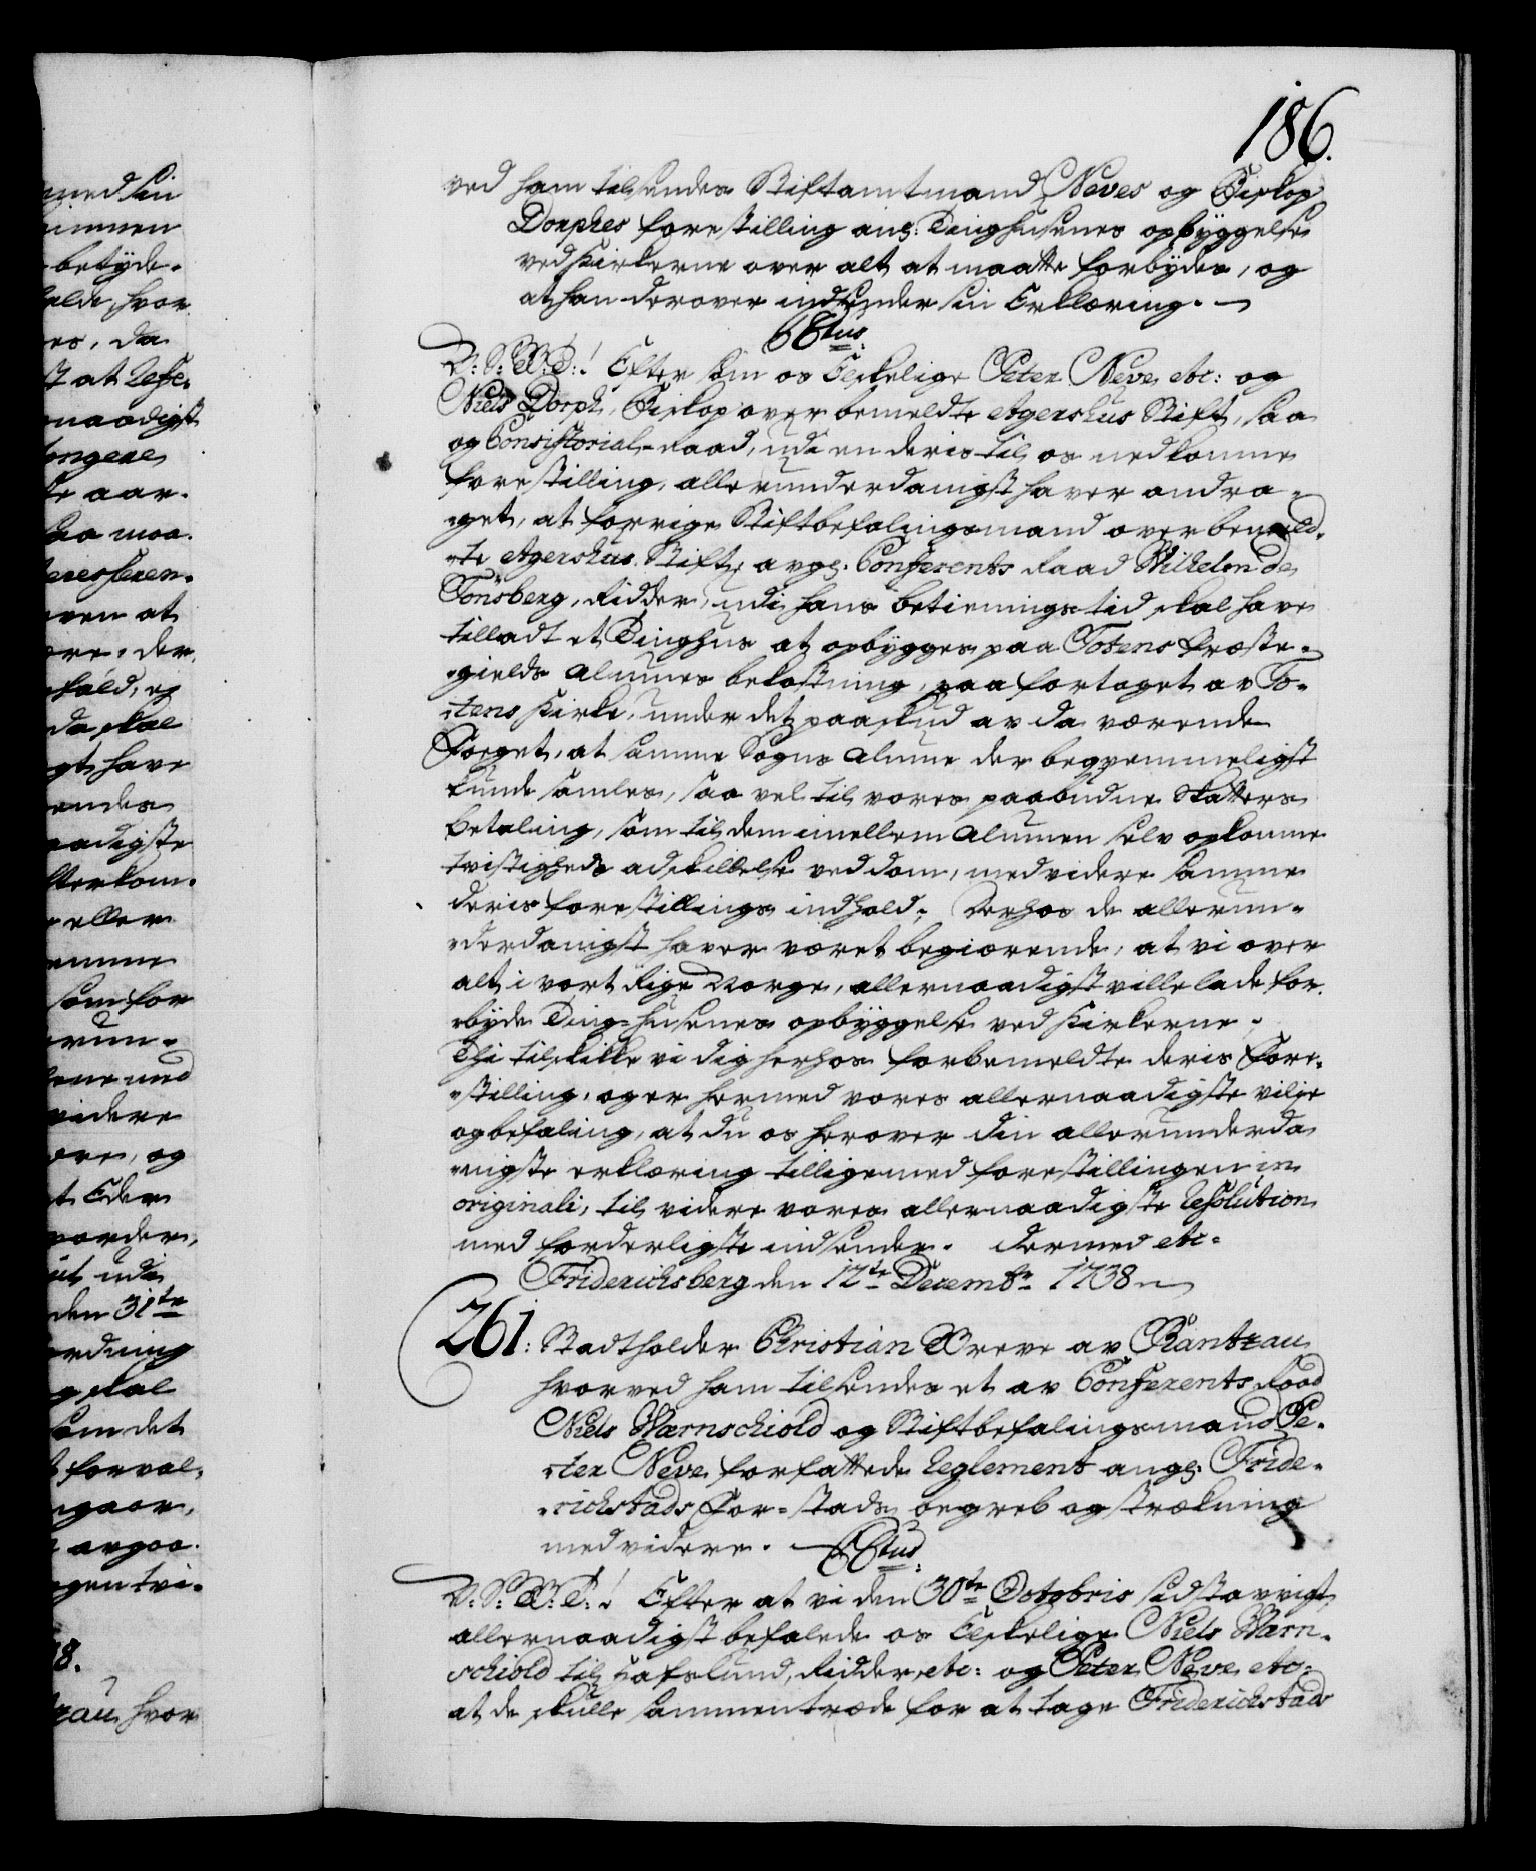 186.
ved ham tilsendes Stiftamtmand Neves og Biskop
Dorphes forestilling ang: Tinghusenes opbyggelse
ved Kirkerne over alt at maatte forbydes, og
at han derover indsender sin Erklæring.
C Xtus.
V: S: G: T: ! Efter som os Elskelige Peter Neve etc: og
Niels Dorph, Biskop over bemeldte Agershus Stift, saa
og Consistorial-Raad, udi en deris til os nedkomne
forestilling, allerunderdanigst haver andra-
-get, at forrige Stiftbefalingsmand over bemeld-
-te Agershus Stift, avg: Conferents Raad Wilhelm de
Tønsberg, Ridder, udi hans betienings tid skal have
tilladt et Tinghus at opbygges paa Totens Præste-
-gields Almues bekostning, paa fortoget av To-
-tens Kirke, under det paaskud av da værende
Foeget, at samme Sogns Almue der beqvemmeligst
kunde samles, saa vel til vores paabudne Skatters
betaling, som til dem imellem Almuen selv opkomne
tvistigheds adskillelse ved dom, med videre samme
deris forestillings indhold; Derhos de allerun-
-derdanigst haver været begiærende, at vi over
alt i vort Rige Norge, allernaadigst ville lade for-
-byde Ting-husenes opbyggelse ved Kirkerne;
Thi tilskikke vi dig herhos forbemeldte deris Fore-
-stilling, og er hermed vores allernaadigste vilje
og befaling, at du os herover din allerunderda
-nigste erklæring tilligemed forestillingen in
originali, til videre vores allernaadigste Resolution
med forderligste indsender. Dermed etc.
Friderichsberg den 12te Decembr 1738
261: Stadtholder Christian Greve av Rantzau
hvorved ham tilsendes et av Conferents Raad
Niels Wærnschiold og Stiftbefalingsmand Pe-
-ter Neve forfattede Reglement ang: Fride-
-richstads For-stads begreb og strækning
med videre. C Xtus.
V: S: G: T: ! Efter at vi den 30te Octobris sidst avvigt
allernaadigst befalede os Elskelige Niels Wærn-
schiold til Hafslund, Ridder, etc: og Peter Neve etc:
at de skulle sammentræde for at tage Friderichstads